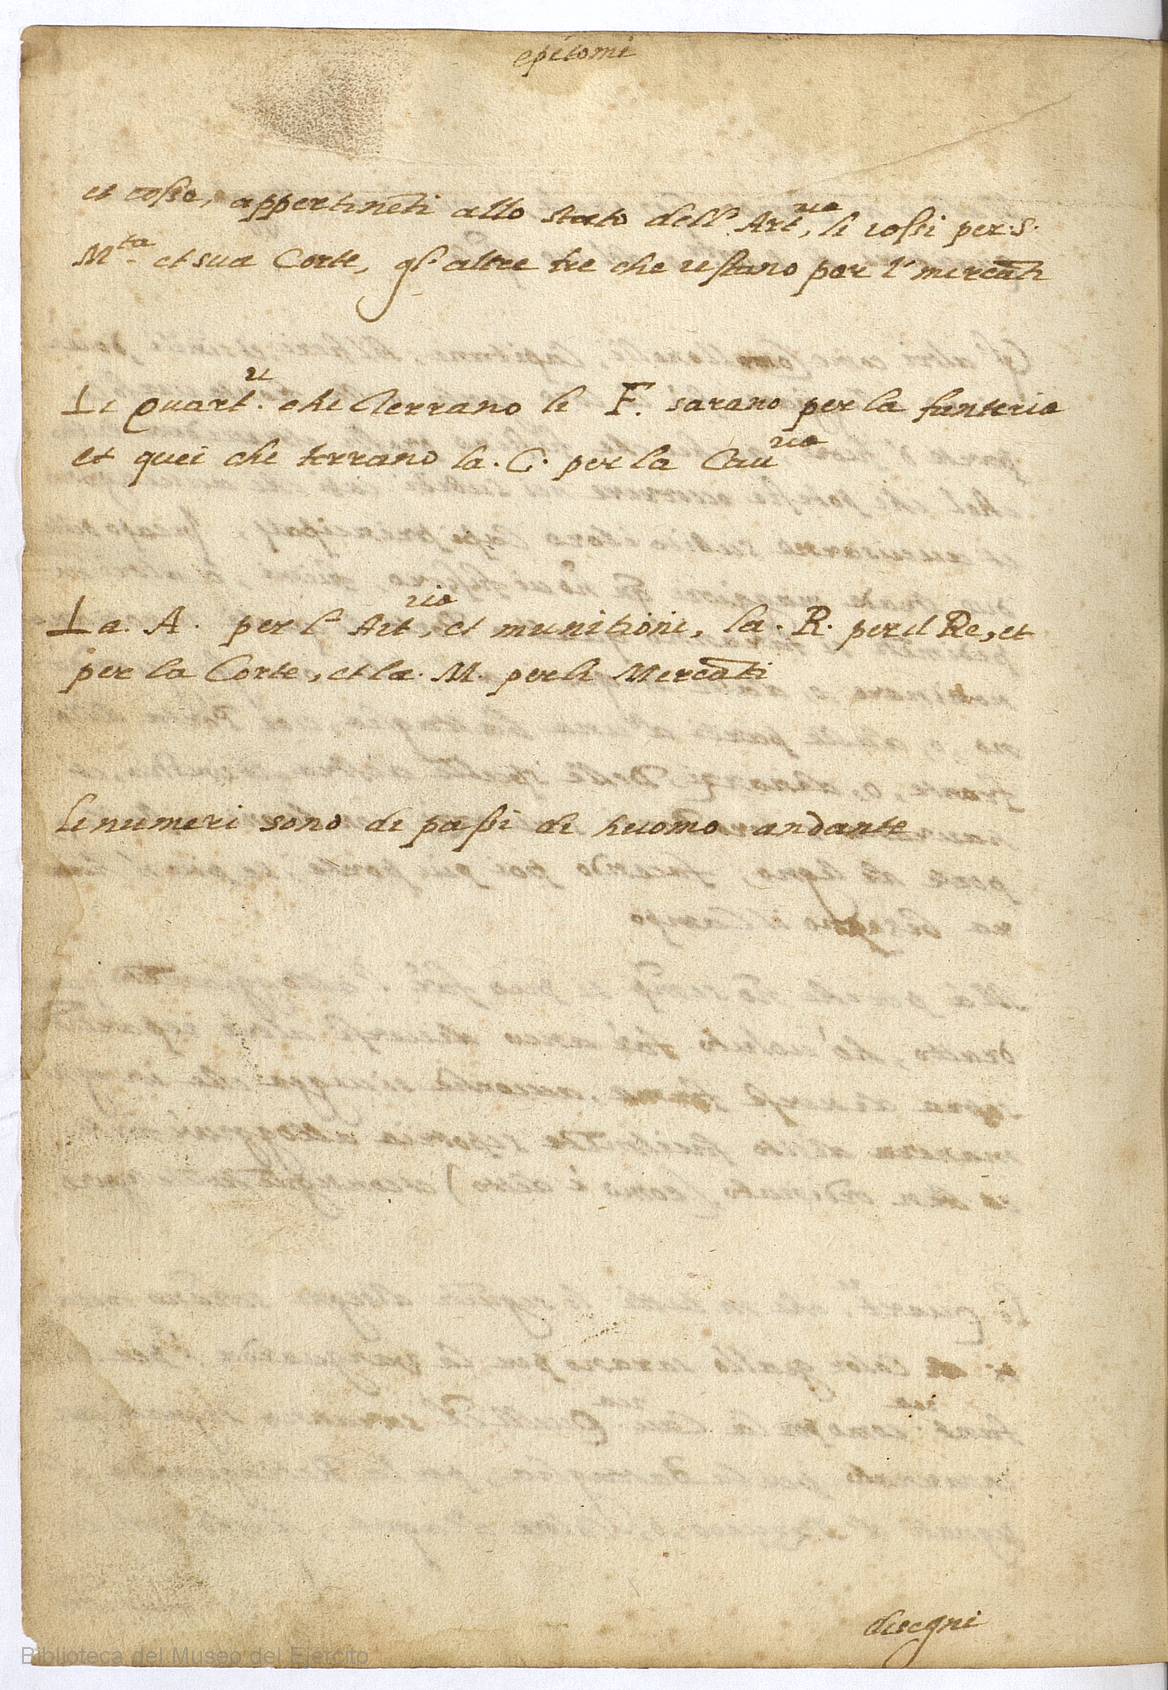 epitomi
et cosse, appertinēti allo stato dell' Art.ria, li rossi per S.
M.ta et sua Corte, gl' altre tre che restano per l' mercāti
Li Quart.ri che terrano le F. sarano per la fanteria
et quei che terrano la .C. per la Cau.ria
La .A. per l' Art.ria, et munitioni, la .R. per il Re, et
per la Corte, et la .M. per li Mercāti
li numeri sono di passi di huomo andante
disegni
Biblioteca del Museo del Ejército